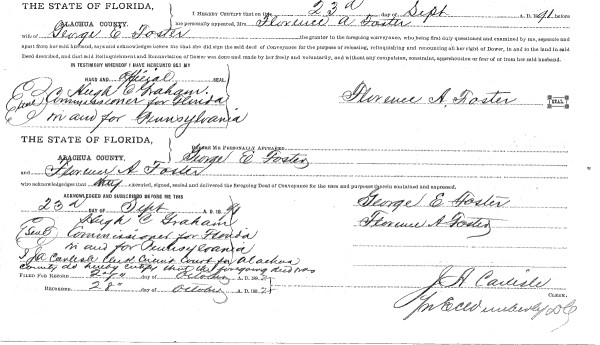 THE STATE OF FLORIDA,
ALACHUA COUNTY.
I HEREBY CERTIFY that on this 23d day of Sept A. D. 1891, before
me personally appeared, Mrs Florence A Foster
wife of George E Foster the grantor in the foregoing conveyance, who being first duly questioned and examined by me, separate and
apart from her said husband, says and acknowledges before me that she did sign the said deed of conveyance for the purpose of releasing, relinquishing and renouncing all her right of Dower, in and to the land in said
Deed described, and that said Relinquishment and Renunciation of Dower was done and made by her freely and voluntarily, and without any compulsion, constraint, apprehension or fear of or from her said husband.
IN TESTIMONY WHEREOF I HAVE HEREUNTO SET MY
HAND AND official SEAL.
Hugh C Graham.
Commissioner for Florida
in and for Pennsylvania
Florence A. Foster SEAL
THE STATE OF FLORIDA,
ALACHUA COUNTY,
BEFORE ME PERSONALLY APPEARED
George E Foster
and Florence A Foster
who acknowledges that they executed, signed, sealed and delivered the foregoing Deed of Conveyance for the uses and purposes therein contained and expressed.
ACKNOWLEDGED AND SUBSCRIBED BEFORE ME THIS
23d DAY OF Sept A. D. 1891
Hugh C Graham
(Seal) Commissioner for Florida
in and for Pennsylvania
George E Foster
Florence A Foster
I J A Carlisle Clerk Circuit Court for Alachua
County do hereby certify that the foregoing deed was
FILED FOR RECORD day of October A. D. 189
RECORDED 28" day of October 189
J A Carlisle
CLERK.